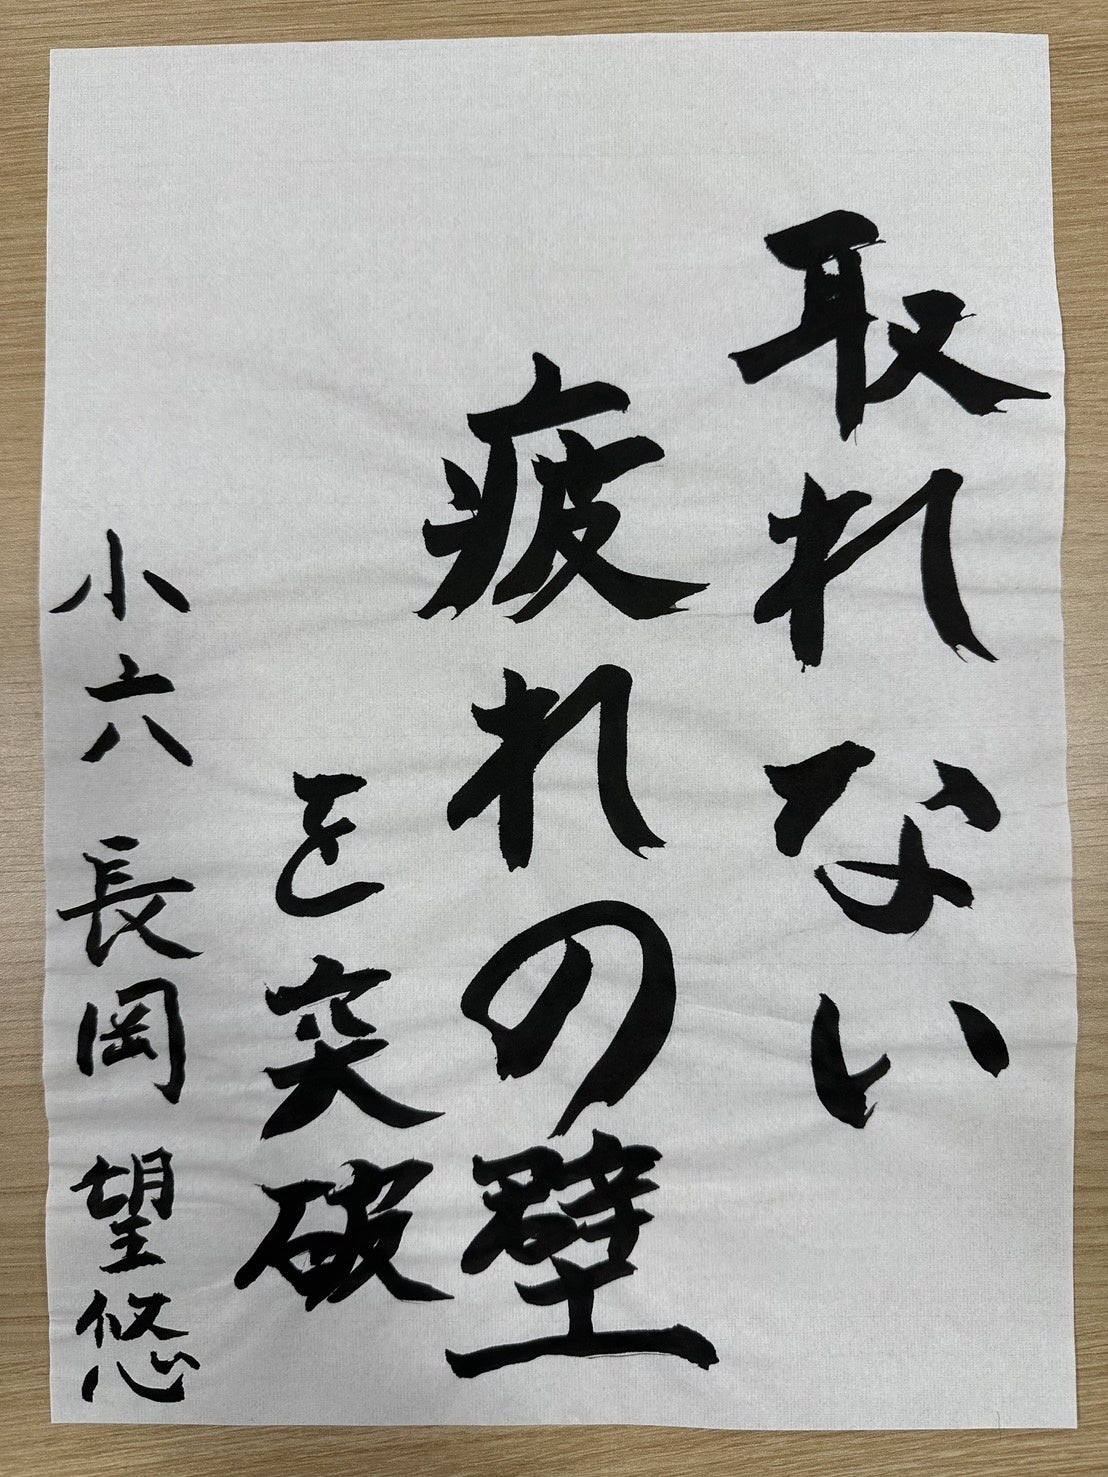 取れない
疲れの壁
を突破
小六 長岡 望悠